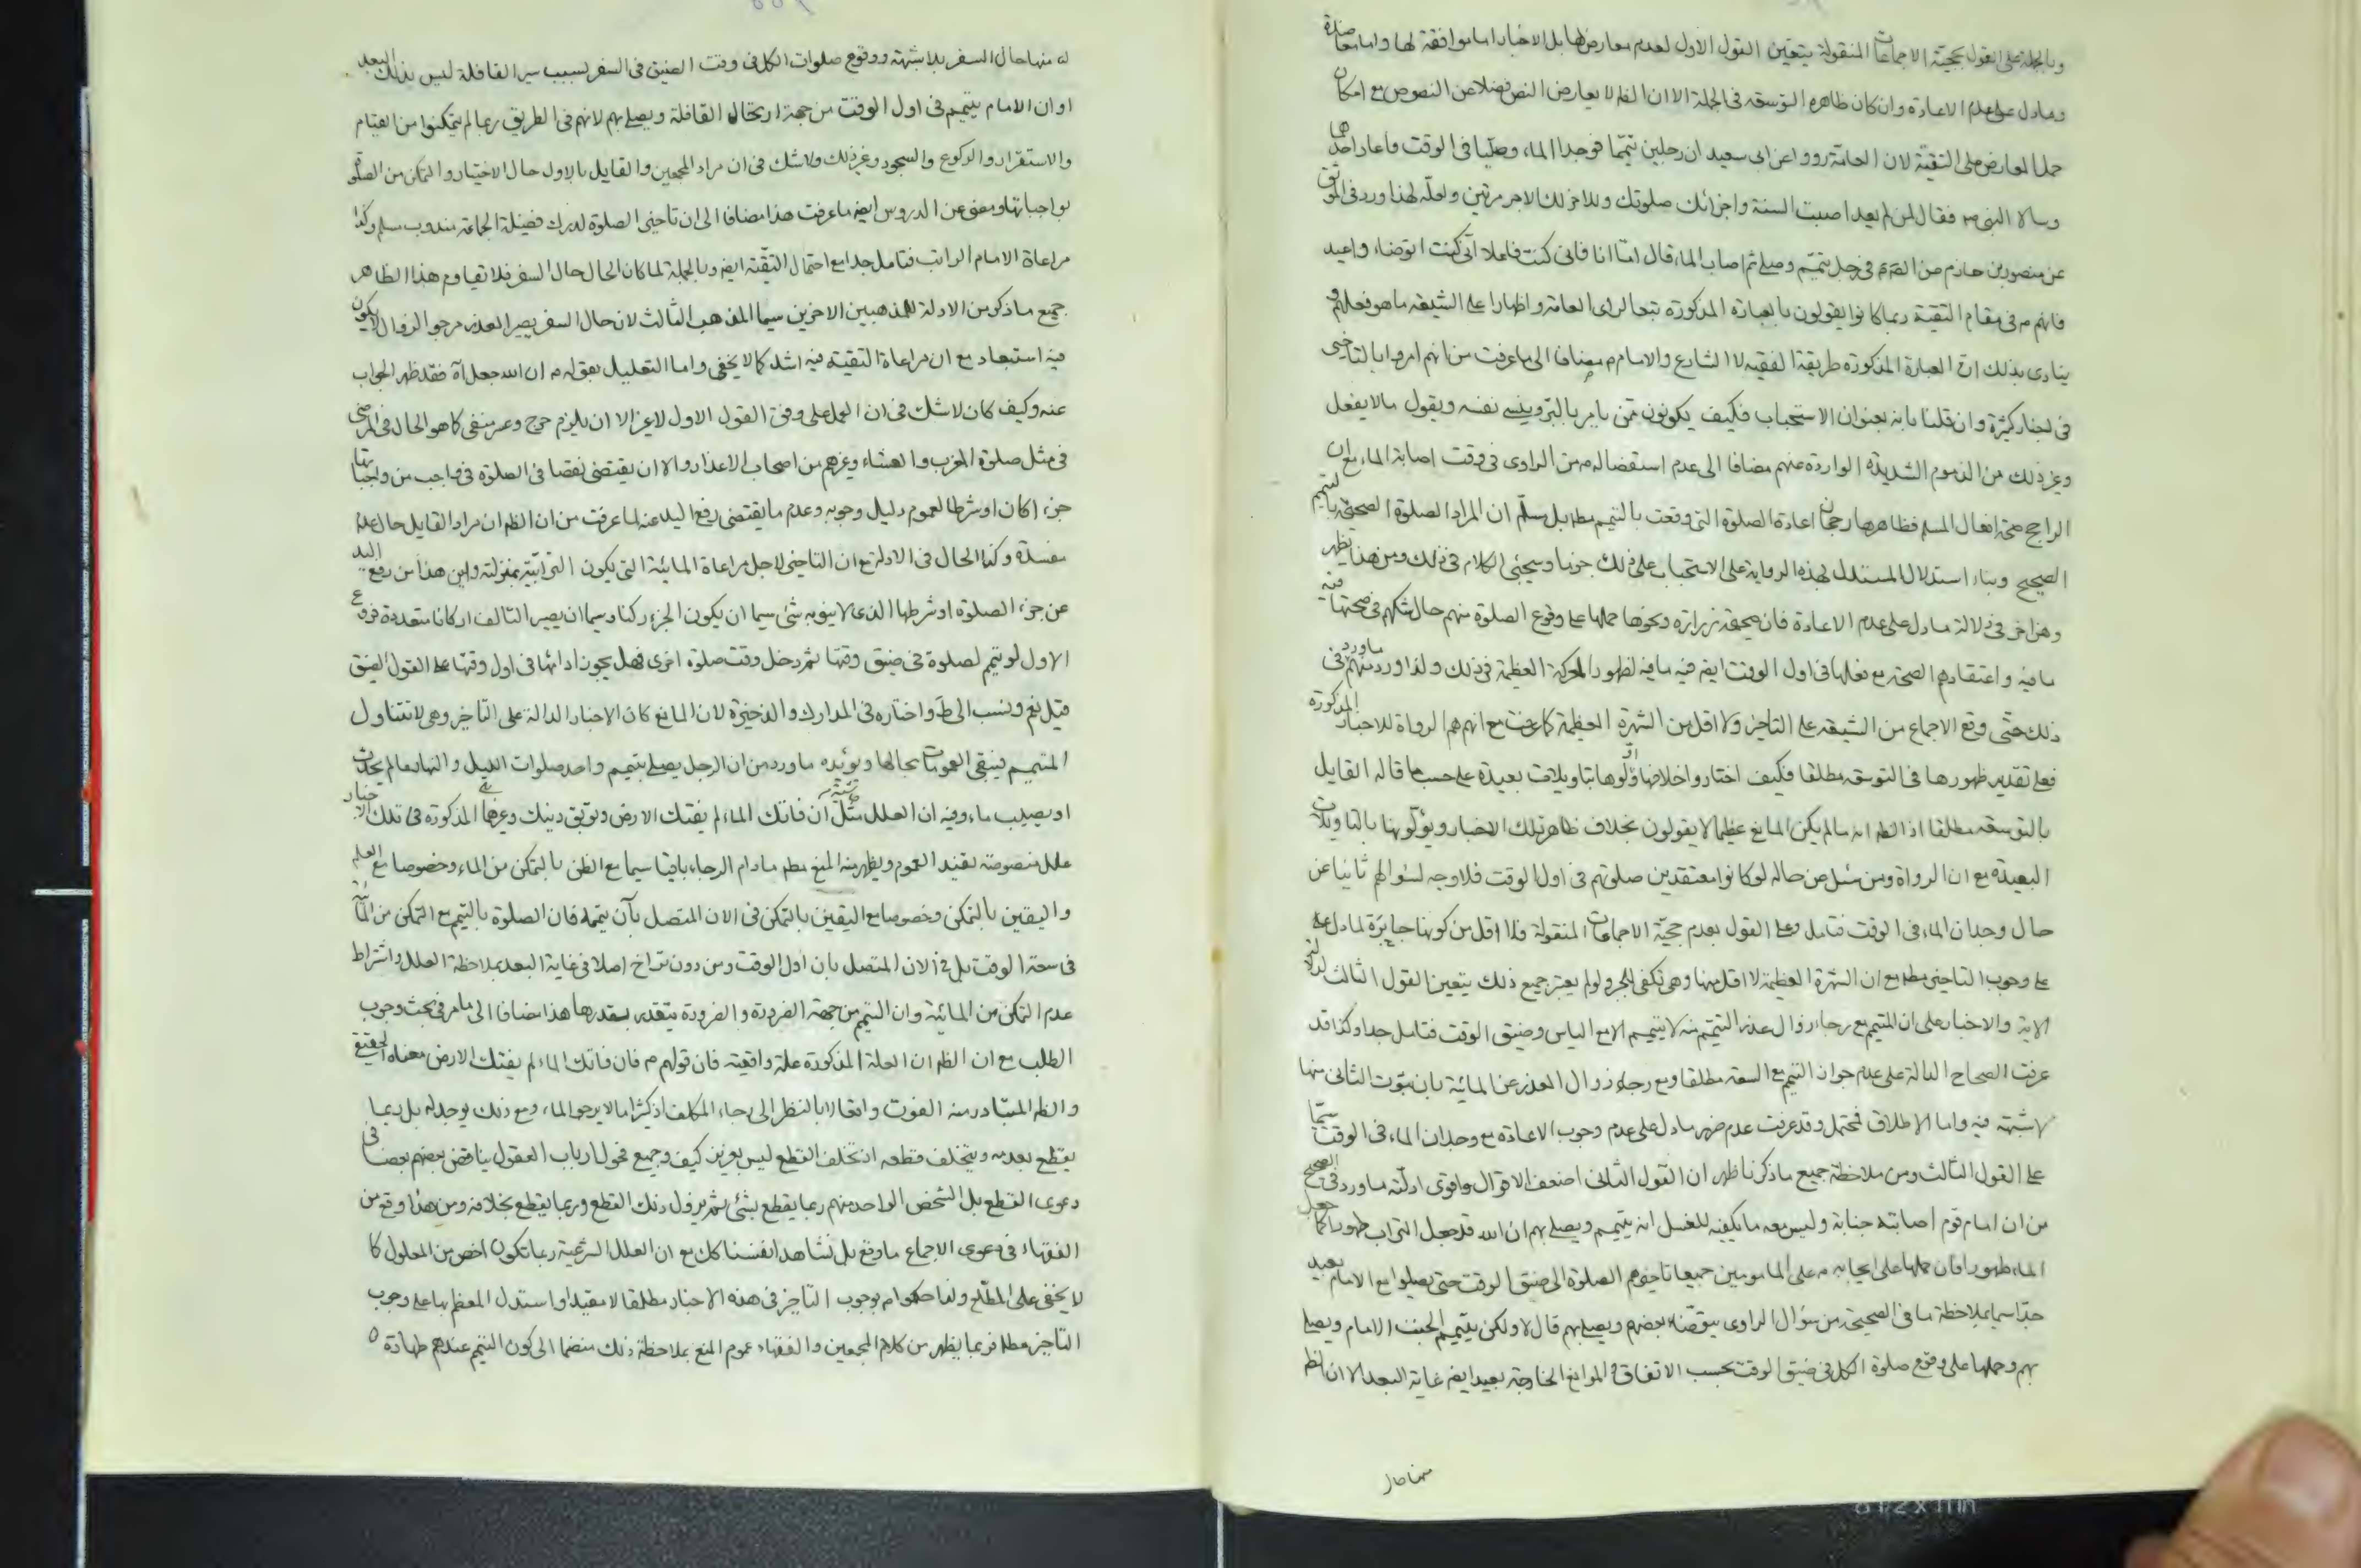 وبالجملة على القول بحجية الاجماعات المنقولة يتعين القول الاول لعدم معارض لها بل الاخبار اما موافقة لها واما معاضدة
وما دل على عدم الاعادة وان كان ظاهره التوسعة في الجملة الا ان الظ لا يعارض النص فضلا عن النصوص مع امكان
حمل المعارض على التقية لان العامة رووا عن ابى سعيد ان رجلين تيمما فوجدا الماء وصليا فى الوقت فاعاد احدهما
وسالا النبى ص فقال لمن لم يعد اصبت السنة واجزائك صلوتك وللاخر لك الاجر مرتين ولعله لهذا ورد فى الموثق
عن منصور بن حازم عن الصم في رجل تيمم وصلى ثم اصاب الماء قال اما انا فانى كنت فاعلا انى كنت اتوضاء واعيد
فانهم م فى مقام التقية ربما كانوا يقولون بالعبارة المذكورة تبعا لراى العامة واظهارا على الشيعة ما هو فعلهم و
ينادى بذلك ان العبارة المذكورة طريقة الفقيه لا الشارع والامام م مضافا الى ما عرفت من انهم امروا بالتاخير
فى اخبار كثيرة وان قلنا بانه بعنوان الاستحباب فكيف يكونون ممن يامر بالبر وينسى نفسه ويقول ما لا يفعل
وغير ذلك من الذموم الشديدة الواردة عنهم مضافا الى عدم استفصاله م من الراوى فى وقت اصابة الماء مع ان
الراجح صحة افعال المسلم فظاهرها رجحان اعادة الصلوة التى وقعت بالتيمم مطلقا بل سلم ان المراد الصلوة الصحيحة بالتيمم
الصحيح وبناء استدلال المستدل بهذه الرواية على الاستحباب على ذلك جزما وسيجئ الكلام فى ذلك ومن هذا يظهر
وهن اخر فى دلالة ما دل على عدم الاعادة فان صحيحة زرارة ونحوها حملها على وقوع الصلوة منهم حال شكهم فى صحتها فيه
ما فيه واعتقادهم الصحة مع فعلها فى اول الوقت ايضا فيه ما فيه لظهور المعركة العظيمة فى ذلك ولذا ورد منهم ما ورد فى
ذلك حتى وقع الاجماع من الشيعة على التاخير ولا اقل من الشهرة العظيمة كما عرفت مع انهم هم الرواة للاخبار المذكورة
فعلى تقدير ظهورها فى التوسعة مطلقا فكيف اختاروا خلافها واولوها بتاويلات بعيدة على حسب ما قاله القايل
بالتوسعة مطلقا اذ الظ انه ما لم يكن المانع عظيما لا يقولون بخلاف ظاهر تلك الاخبار ويؤلونها بالتاويلات
البعيدة مع ان الرواة ومن سئل عن حاله لو كانوا معتقدين صلوتهم فى اول الوقت فلا وجه لسؤالهم ثانيا عن
حال وجدان الماء فى الوقت فتامل وعلى القول بعدم حجية الاجماعات المنقولة فلا اقل من كونها جابرة لما دل على
على وجوب التاخير مطلقا مع ان الشهرة العظيمة لا اقل منها وهى تكفى للجبر ولو لم يعتبر جميع ذلك يتعين القول الثالث لدلالة
الاية والاخبار على ان المتيمم مع رجاء زوال عذر التيمم منه لا يتيمم الا مع الياس وضيق الوقت فتامل جدا وكذا قد
عرفت الصحاح الدالة على عدم جواز التيمم مع السعة مطلقا ومع رجاء زوال العذر عن المائية بان ثبوت الثانى منها
لا شبهة فيه واما الاطلاق فمحتمل وقد عرفت عدم ضرر ما دل على عدم وجوب الاعادة مع وجدان الماء فى الوقت سيما
على القول الثالث ومن ملاحظة جميع ما ذكرنا ظهر ان القول الثانى اضعف الاقوال واقوى ادلته ما ورد فى الصحيح
من ان امام قوم اصابته جنابة وليس معه ما يكفيه للغسل انه يتيمم ويصلى بهم ان الله قد جعل التراب طهورا كما جعل
الماء طهورا فان حملها على ايجابه م على المامومين جميعا تاخيرهم الصلوة الى ضيق الوقت حتى يصلوا مع الامام بعيد
جدا سيما بملاحظة ما فى الصحيحة من سؤال الراوى يتوضاء بعضهم ويصلى بهم قال لا ولكن يتيمم الجنب الامام ويصلى
بهم وحملها على وقوع صلوة الكل فى ضيق الوقت بحسب الاتفاق والموانع الخارجة بعيد ايضا غاية البعد الا ان الظ
منها حال
له منها حال السفر بلا شبهة ووقوع صلوات الكل فى وقت الضيق فى السفر بسبب سير القافلة ليس بذلك البعد
او ان الامام يتيمم فى اول الوقت من جهة ارتحال القافلة ويصلى بهم لانهم فى الطريق ربما لم يتمكنوا من القيام
والاستقرار والركوع والسجود وغير ذلك ولا شك فى ان مراد المجمعين والقايل بالاول حال الاختيار والتمكن من الصلوة
بواجباتها ومضى عن الدروس ايضا ما عرفت هذا مضافا الى ان تاخير الصلوة لدرك فضيلة الجماعة مندوب مسلم وكذا
مراعاة الامام الراتب فتامل جدا مع احتمال التقية ايضا وبالجملة لما كان الحال حال السفر فلا تقاوم هذا الظاهر
جميع ما ذكر من الادلة للمذهبين الاخرين سيما المذهب الثالث لان حال السفر يصير العذر مرجو الزوال لا يكون
فيه استبعاد مع ان مراعاة التقية فيه اشد كما لا يخفى واما التعليل بقوله م ان الله جعل اه فقد ظهر الجواب
عنه وكيف كان لا شك فى ان العمل على وفق القول الاول لا غير الا ان يلزم حرج وعسر منفى كما هو الحال فى المرضى
فى مثل صلوة المغرب والعشاء وغيرهم من اصحاب الاعذار والا ان يقتضى نقصا فى الصلوة فى واجب من واجباتها
جزءا كان او شرطا لعموم دليل وجوبه وعدم ما يقتضى رفع اليد عنه لما عرفت من ان الظ ان مراد القايل حال عدم
مفسدة وكذا الحال فى الادلة مع ان التاخير لاجل مراعاة المائية التى يكون الترابية بمنزلته واين هذا من رفع اليد
عن جزء الصلوة او شرطها الذى لا ينوبه شئ سيما ان يكون الجزء ركنا وسيما ان يصير التالف اركانا متعددة فروع
الاول لو تيمم لصلوة فى ضيق وقتها ثم دخل وقت صلوة اخرى فهل يجوز ادائها فى اول وقتها على القول بالضيق
قيل نعم ونسب الى ط واختاره فى المدارك والذخيرة لان المانع كان الاخبار الدالة على التاخير وهى لا تتناول
المتيمم فيبقى العمومات بحالها ويؤيده ما ورد من ان الرجل يصلى بتيمم واحد صلوات الليل والنهار ما لم يحدث
او يصيب ماء وفيه ان العلل مثل ان فاتك الماء لم يفتك الارض وتوثق دينك وغيرها المذكورة فى تلك الاخبار
علل منصوصة تفيد العموم ويظهر منه المنع مطلقا ما دام الرجاء باقيا سيما مع الظن بالتمكن من الماء وخصوصا مع العلم
واليقين بالتمكن وخصوصا مع اليقين بالتمكن فى الان المتصل بآن يتممه فان الصلوة بالتيمم مع التمكن من الماء
فى سعة الوقت بل فى الان المتصل بان اول الوقت ومن دون تراخ اصلا فى غاية البعد بملاحظة العلل واشتراط
عدم التمكن من المائية وان التيمم من جهة الضرورة والضرورة يتقدر بقدرها هذا مضافا الى ما مر فى بحث وجوب
الطلب مع ان الظ ان العلة المذكورة علة واقعية فان قولهم م فان فاتك الماء لم يفتك الارض معناه الحقيقى
والظ المتبادر منه الفوت واقعا لا بالنظر الى رجاء المكلف اذ كثيرا ما لا يرجو الماء ومع ذلك يوجد له بل ربما
يقطع بعدمه ويتخلف قطعه اذ تخلف القطع ليس بعزيز كيف وجميع فحول ارباب العقول يناقض بعضهم بعضا فى
دعوى القطع بل الشخص الواحد منهم ربما يقطع بشئ ثم يزول ذلك القطع وربما يقطع بخلافه ومن هذا وقع من
الفقهاء فى دعوى الاجماع ما وقع بل نشاهد انفسنا كك مع ان العلل الشرعية ربما تكون اخص من المعلول كما
لا يخفى على المطلع ولذا حكموا بوجوب التاخير فى هذه الاخبار مطلقا لا مقيدا واستدل المعظم بها على وجوب
التاخير مطلقا فربما يظهر من كلام المجمعين والفقهاء عموم المنع بملاحظة ذلك منضما الى كون التيمم عندهم طهارة